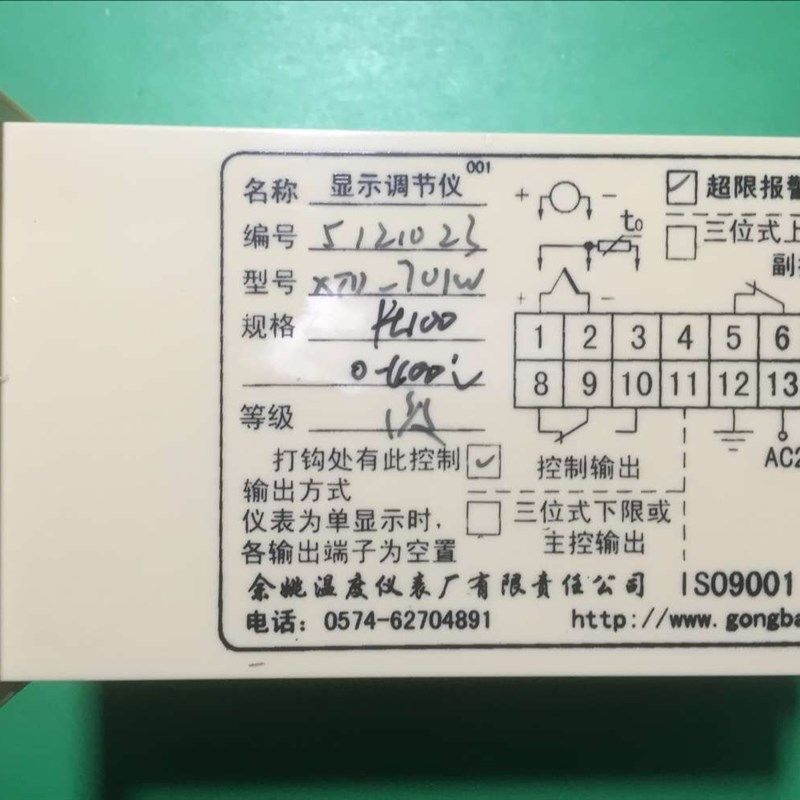 名称 显示调节仪 001
编号 5121023
型号 XTD-701W
规格 Pt100
0-400℃
等级 1级
打钩处有此控制
输出方式
仪表为单显示时,
各输出端子为空置
+ −
t₀
+ −
超限报警
三位式上
副控
1 2 3 4 5 6
8 9 10 11 12 13
控制输出
AC2
三位式下限或
主控输出
余姚温度仪表厂有限责任公司 ISO9001
电话: 0574-62704891 http://www.gongba